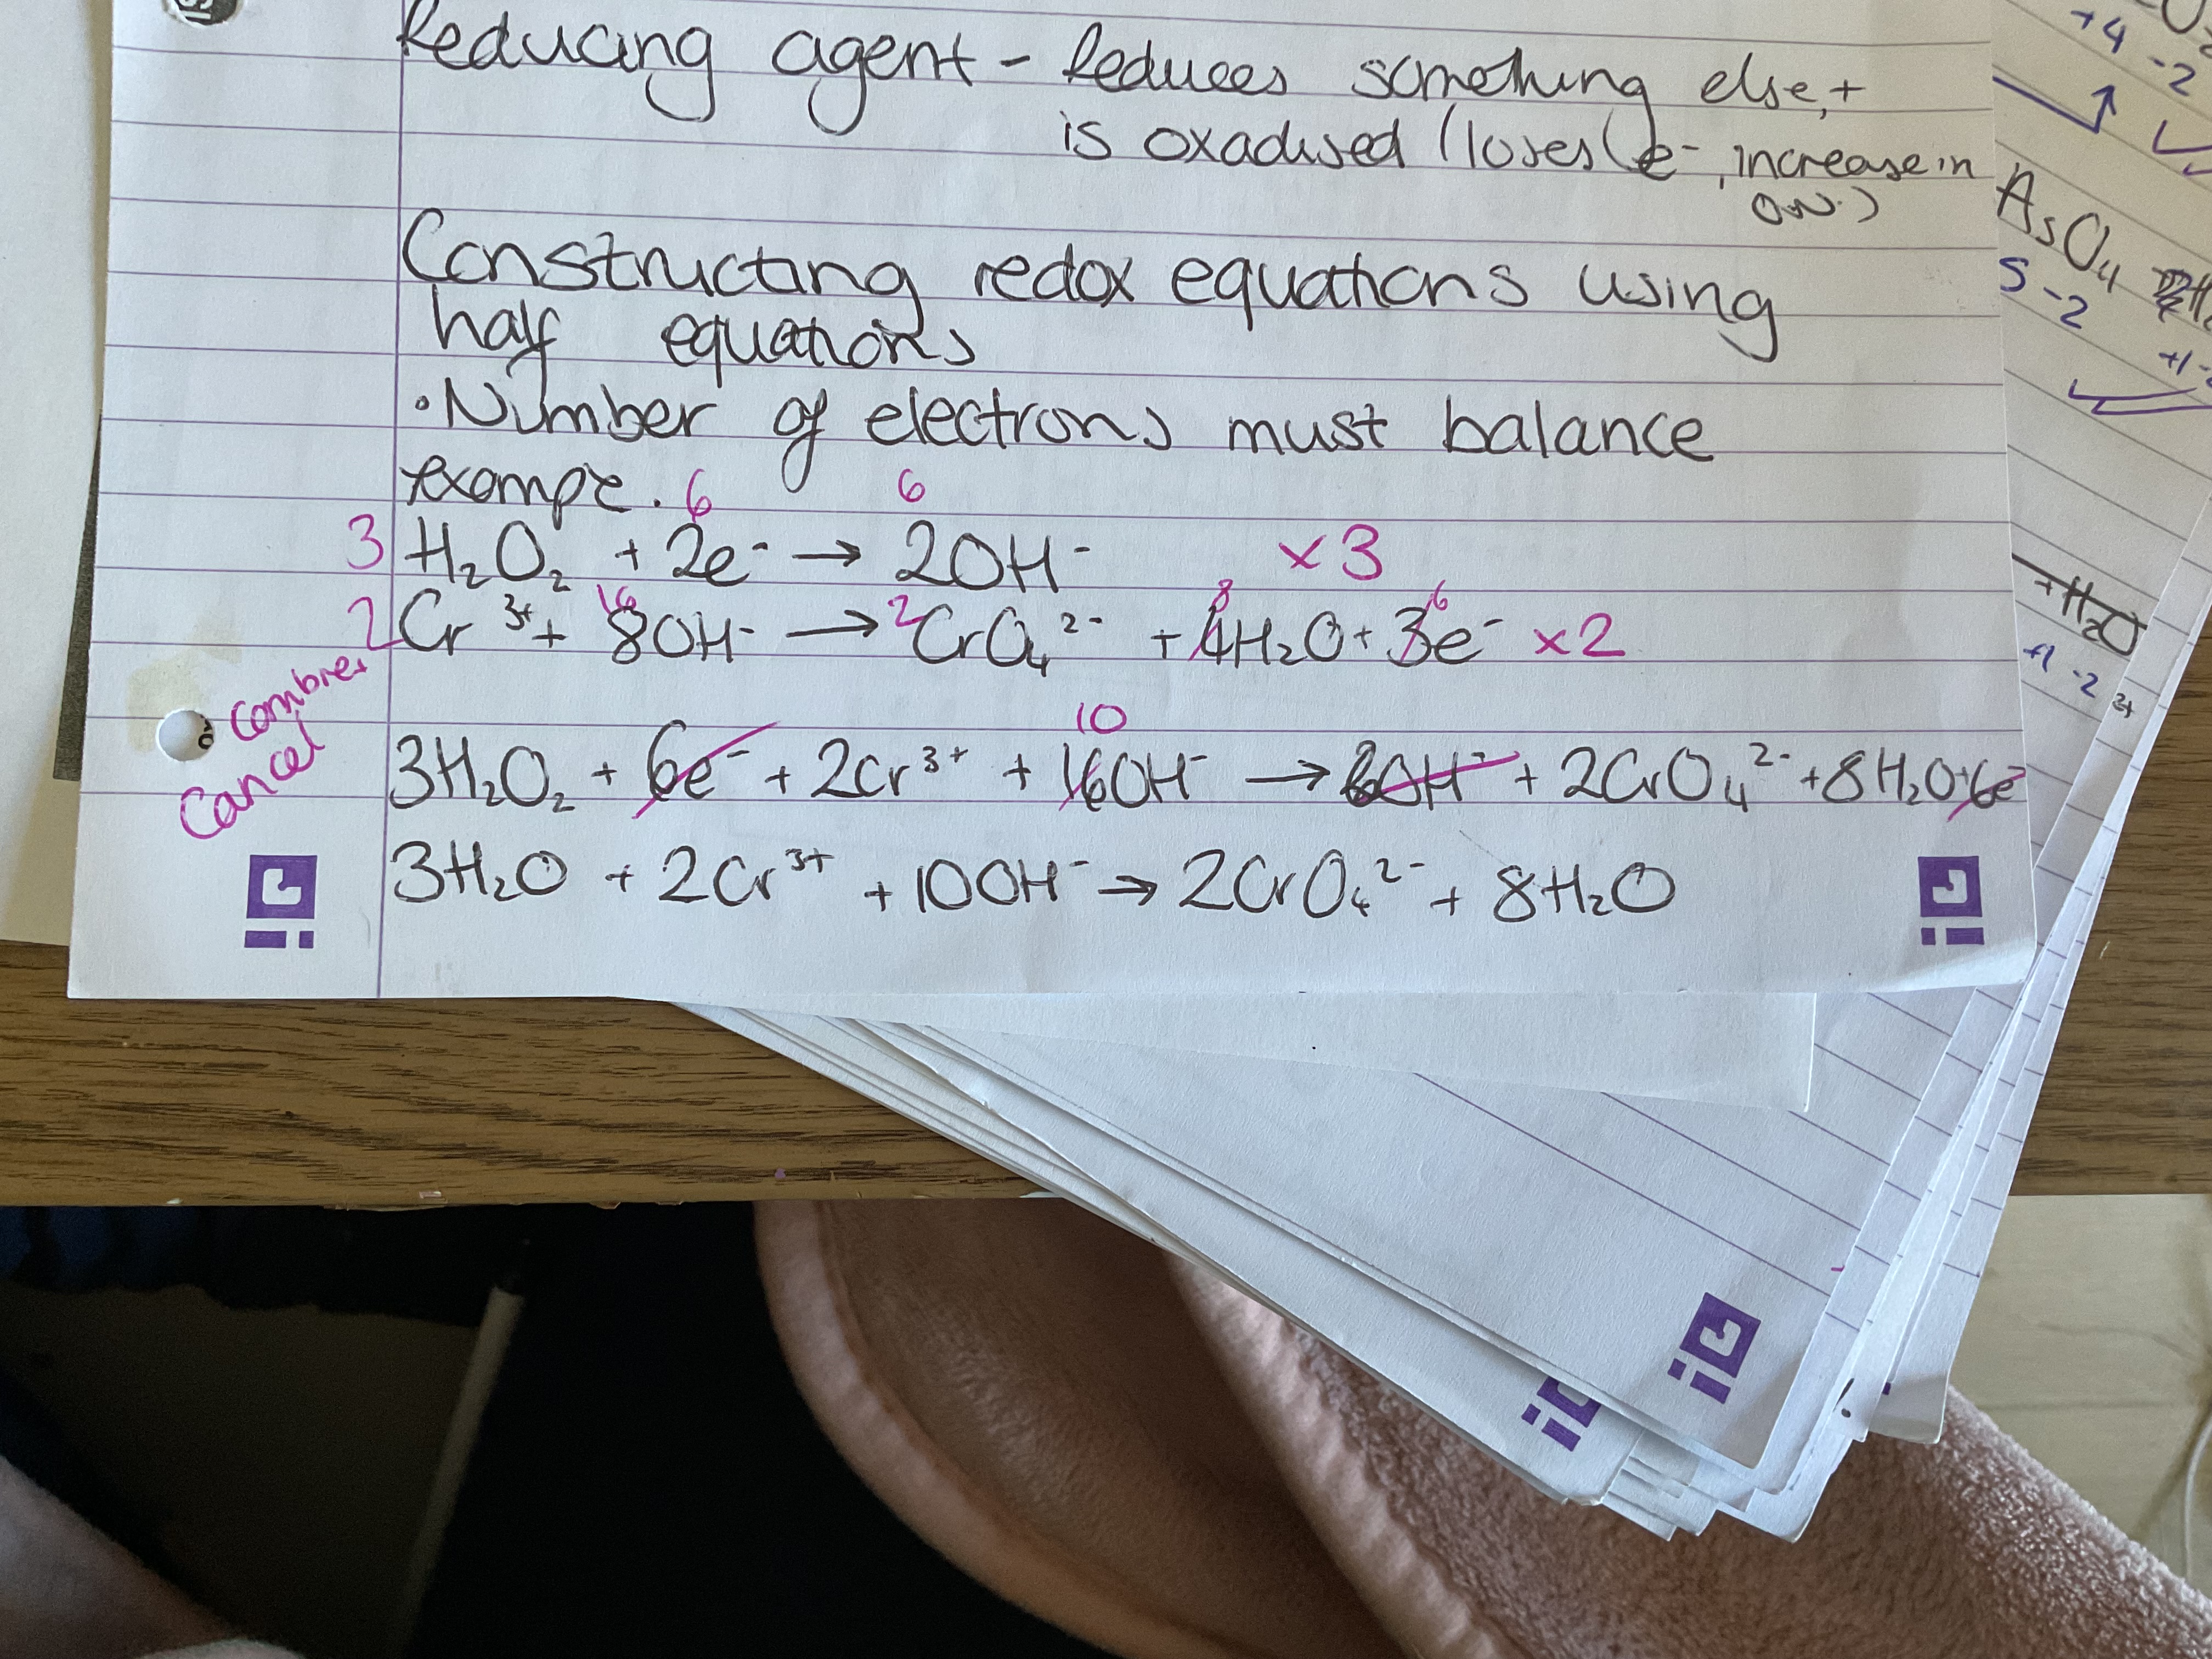 Reducing agent - Reduces something else, +
is oxadised (loses e⁻, increase in
O.N.)
Constructing redox equations using
half equations
• Number of electrons must balance
exampe. 6 6
3 H₂O₂ + 2e⁻ → 2OH⁻ ×3
16 2 8 6
2 Cr³⁺ + 8OH⁻ → CrO₄²⁻ + 4H₂O + 3e⁻ ×2
Combine +
Cancel
10
3H₂O₂ + 6e⁻ + 2Cr³⁺ + 16OH⁻ → 6OH⁻ + 2CrO₄²⁻ + 8H₂O + 6e⁻
3H₂O + 2Cr³⁺ + 10OH⁻ → 2CrO₄²⁻ + 8H₂O
+4 -2
AsO₄
5 -2
+H₂O
+1 -2
3+